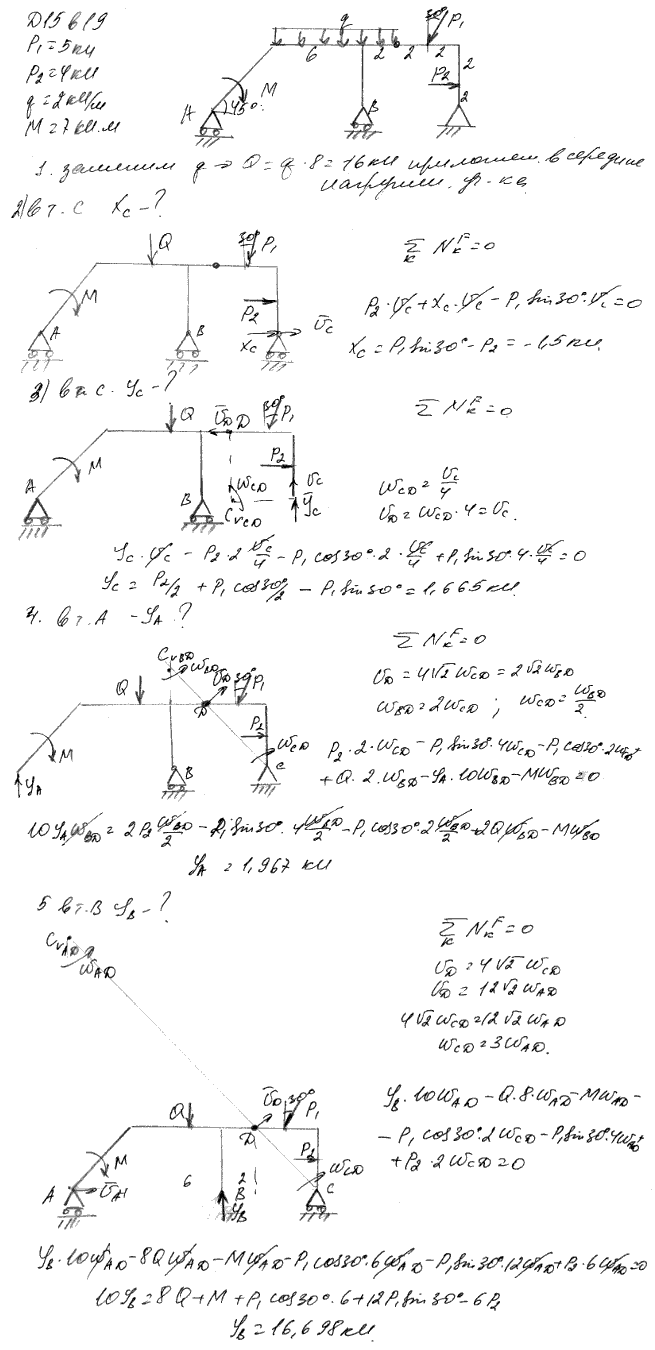 Д15 в19
P₁=5кН
P₂=4кН
q=2кН/м
M=7кН·м
q 30° P₁
6 2 2 2 2
M P₂
A 45° B 2
1. заменим q → Q = q·8 = 16кН приложен. в середине
нагружен. уч-ка
2) в т. C X_C - ?
Q 30° P₁
M P₂ V̄_C
A B X_C
Σ_K N_K^F = 0
P₂·V_C + X_C·V_C - P₁ sin30°·V_C = 0
X_C = P₁ sin30° - P₂ = -1,5 кН.
3) в т. C. Y_C - ?
Q V̄_D D 30° P₁
M P₂
ω_CD V_C
A B C_VCD Ȳ_C
Σ N_K^F = 0
ω_CD = V_C/4
V_D = ω_CD·4 = V_C.
Y_C·V_C - P₂·2 V_C/4 - P₁ cos30°·2·V_C/4 + P₁ sin30°·4·V_C/4 = 0
Y_C = P₂/2 + P₁ cos30°/2 - P₁ sin30° = 1,665 кН.
4. в т. A - Y_A ?
C_VBD ω_BD
Q V̄_D 30° P₁
D
M P₂ ω_CD
Y_A B C
Σ N_K^F = 0
V_D = 4√2 ω_CD = 2√2 ω_BD
ω_BD = 2ω_CD ; ω_CD = ω_BD/2.
P₂·2·ω_CD - P₁ sin30°·4ω_CD - P₁ cos30°·2ω_CD +
+ Q·2·ω_BD - Y_A·10ω_BD - Mω_BD = 0
10Y_A ω_BD = 2P₂ ω_BD/2 - P₁ sin30°·4 ω_BD/2 - P₁ cos30°·2 ω_BD/2 + 2Qω_BD - Mω_BD
Y_A = 1,967 кН
5 в т. B Y_B - ?
C_VAD
ω_AD
Σ_K N_K^F = 0
V_D = 4√2 ω_CD
V_D = 12√2 ω_AD
4√2 ω_CD = 12√2 ω_AD
ω_CD = 3ω_AD.
Q V̄_D 30° P₁
D
M P₂ ω_CD
A V̄_A 6 2 B Y_B C
Y_B·10ω_AD - Q·8·ω_AD - Mω_AD -
- P₁ cos30°·2ω_CD - P₁ sin30°·4ω_CD +
+ P₂·2ω_CD = 0
Y_B·10ω_AD - 8Qω_AD - Mω_AD - P₁ cos30°·6ω_AD - P₁ sin30°·12ω_AD + P₂·6ω_AD = 0
10Y_B = 8Q + M + P₁ cos30°·6 + 12P₁ sin30° - 6P₂
Y_B = 16,698 кН.